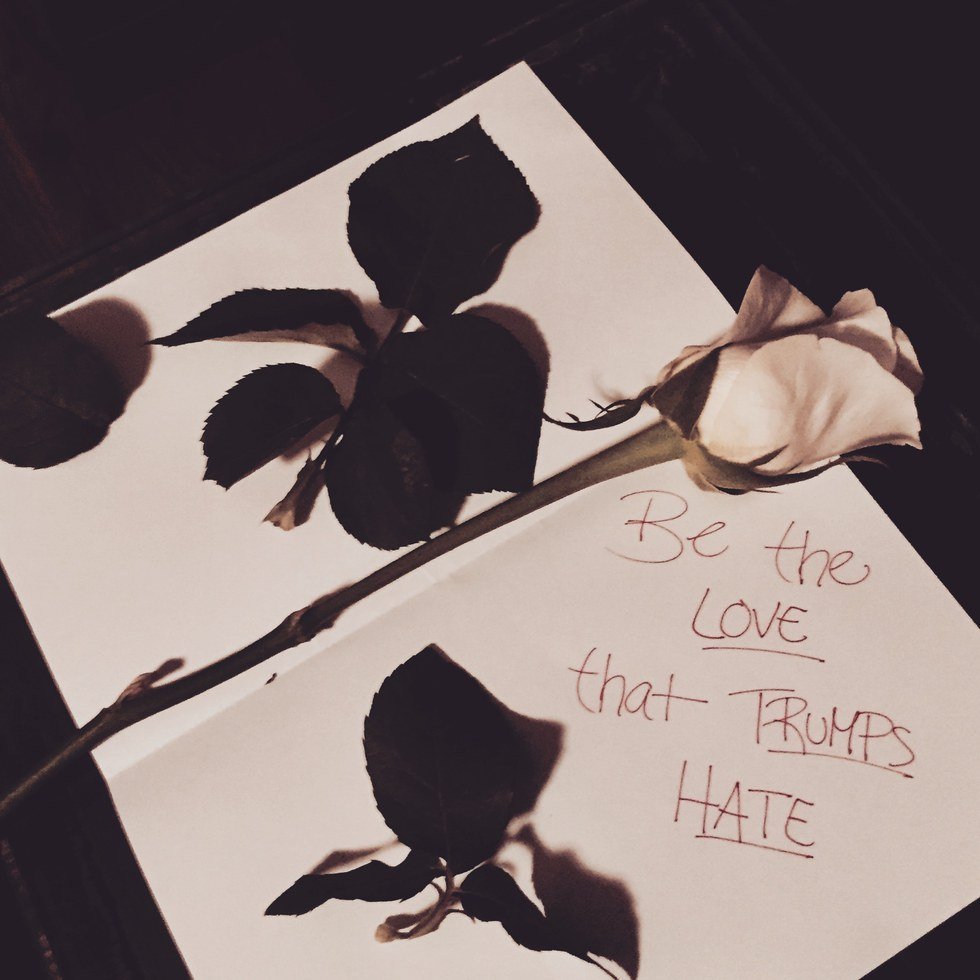 Be the
LOVE
that TRUMPS
HATE